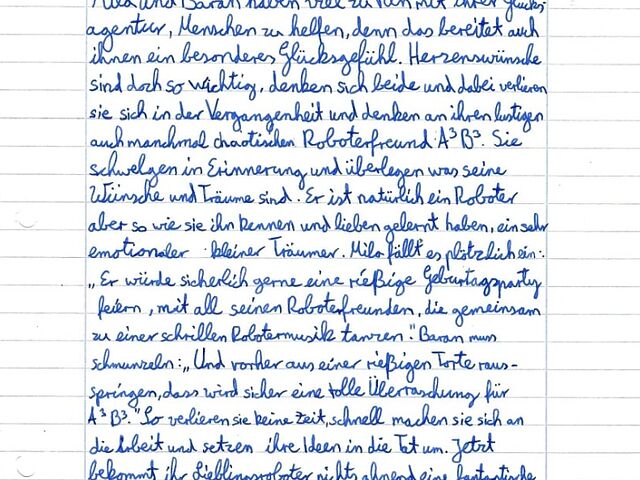 Mila und Baran haben viel zu tun mit ihrer Glücks-
agentur, Menschen zu helfen, denn das bereitet auch
ihnen ein besonderes Glücksgefühl. Herzenswünsche
sind doch so wichtig, denken sich beide und dabei verlieren
sie sich in der Vergangenheit und denken an ihren lustigen
auch manchmal chaotischen Roboterfreund A³B³. Sie
schwelgen in Erinnerung und überlegen was seine
Wünsche und Träume sind. Er ist natürlich ein Roboter
aber so wie sie ihn kennen und lieben gelernt haben, ein sehr
emotionaler kleiner Träumer. Mila fällt es plötzlich ein:
„Er würde sicherlich gerne eine rießige Geburtagsparty
feiern, mit all seinen Roboterfreunden, die gemeinsam
zu einer schrillen Robotermusik tanzen." Baran muss
schmunzeln: „Und vorher aus einer rießigen Torte raus-
springen, dass wird sicher eine tolle Überraschung für
A³B³." So verlieren sie keine Zeit, schnell machen sie sich an
die Arbeit und setzen ihre Ideen in die Tat um. Jetzt
bekommt ihr Lieblingsroboter nichts ahnend eine fantastische